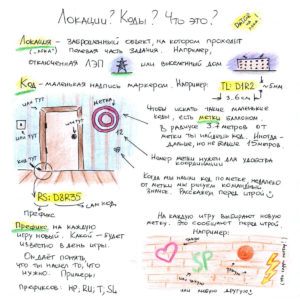 Локации? Коды? Что это?
Локация - заброшенный объект, на котором проходит
полевая часть задания. Например,
отключенная ЛЭП или выселенный дом
Код - маленькая надпись маркером. Например: TL:D1R2
3.6 см
Чтобы искать такие маленькие
коды, есть метки баллоном.
В радиусе 3-7 метров от
метки ты найдёшь код. Иногда -
дальше, но не выше 15 метров
Номер метки нужен для удобства
координации
Когда мы нашли код по метке, недалеко
от метки мы рисуем командный
значок. Расскажем перед игрой
или тут
или тут
метка
12
или тут
код тут
RS:D8R35
префикс
сам код
Префикс на каждую
игру новый. Какой - будет
известно в день игры.
Он даёт понять,
что ты нашел то, что
нужно. Примеры
префиксов: HP, RU, T, SL
На каждую игру выбирают новую
метку. Это сообщают перед игрой
Например:
SP
или новую другую!